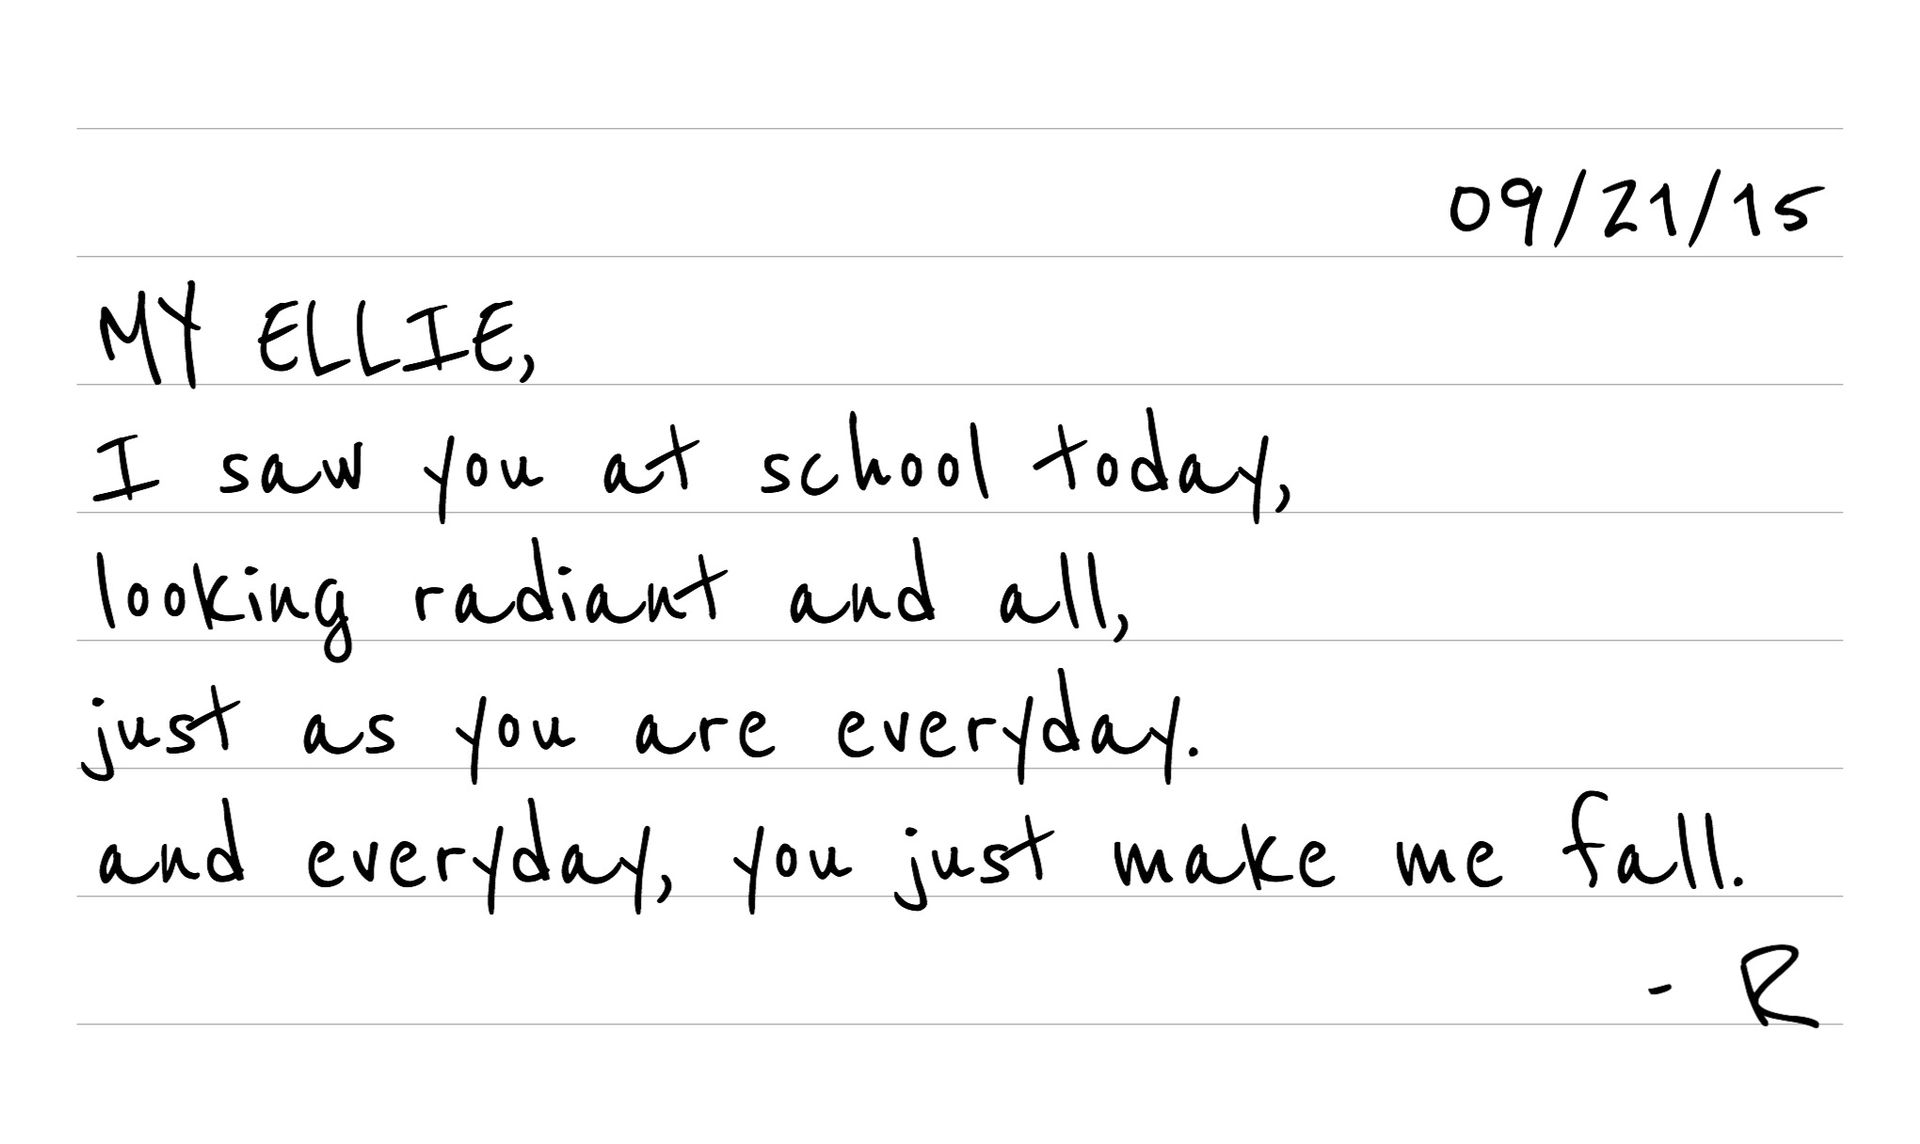 09/21/15
MY ELLIE,
I saw you at school today,
looking radiant and all,
just as you are everyday.
and everyday, you just make me fall.
- R